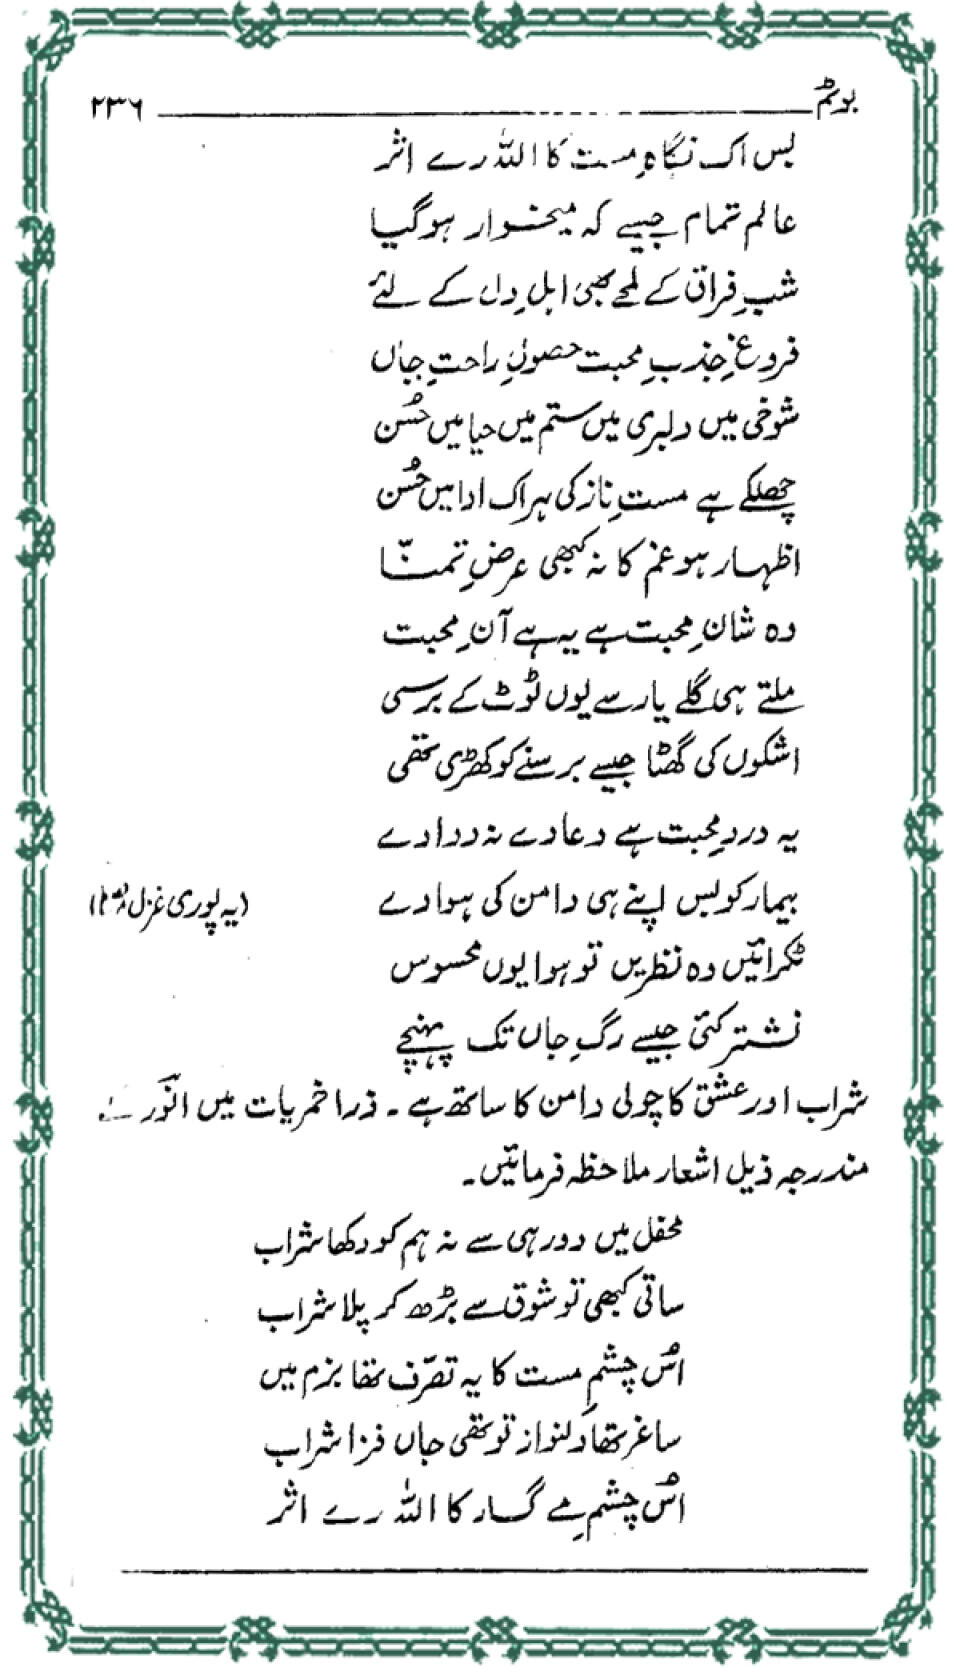 بوئم ۲۳۶
بس اک نگاہِ مست کا اللہ رے اثر
عالم تمام جیسے کہ میخوار ہوگیا
شبِ فراق کے لمحے بھی اہلِ دل کے لئے
فروغِ جذبِ محبت حصولِ راحتِ جاں
شوخی میں دلبری میں ستم میں حیا میں حُسن
چھلکے ہے مستِ ناز کی ہر اک ادا میں حُسن
اظہار ہو غم کا نہ کبھی عرضِ تمنّا
وہ شانِ محبت ہے یہ ہے آنِ محبت
ملتے ہی گلے یار سے یوں ٹوٹ کے برسی
اشکوں کی گھٹا جیسے برسنے کو کھڑی تھی
یہ دردِ محبت ہے دعا دے نہ دوا دے
بیمار کو بس اپنے ہی دامن کی ہوا دے (یہ پوری غزل
ٹکرائیں وہ نظریں تو ہوا یوں محسوس
نشتر کئی جیسے رگِ جاں تک پہنچے
شراب اور عشق کا چولی دامن کا ساتھ ہے ۔ ذرا خمریات میں انورؔ کے
مندرجہ ذیل اشعار ملاحظہ فرمائیں۔
محفل میں دور ہی سے نہ ہم کو دکھا شراب
ساقی کبھی تو شوق سے بڑھ کر پلا شراب
اُس چشمِ مست کا یہ تصرّف تھا بزم میں
ساغر تھا دلنواز تو تھی جاں فزا شراب
اُس چشمِ مے گسار کا اللہ رے اثر